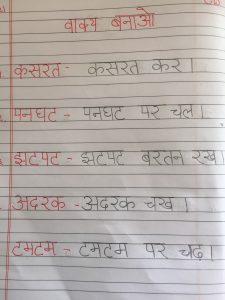 वाक्य बनाओ
कसरत - कसरत कर।
पनघट - पनघट पर चल।
झटपट - झटपट बरतन रख।
अदरक - अदरक चख।
टमटम - टमटम पर चढ़।